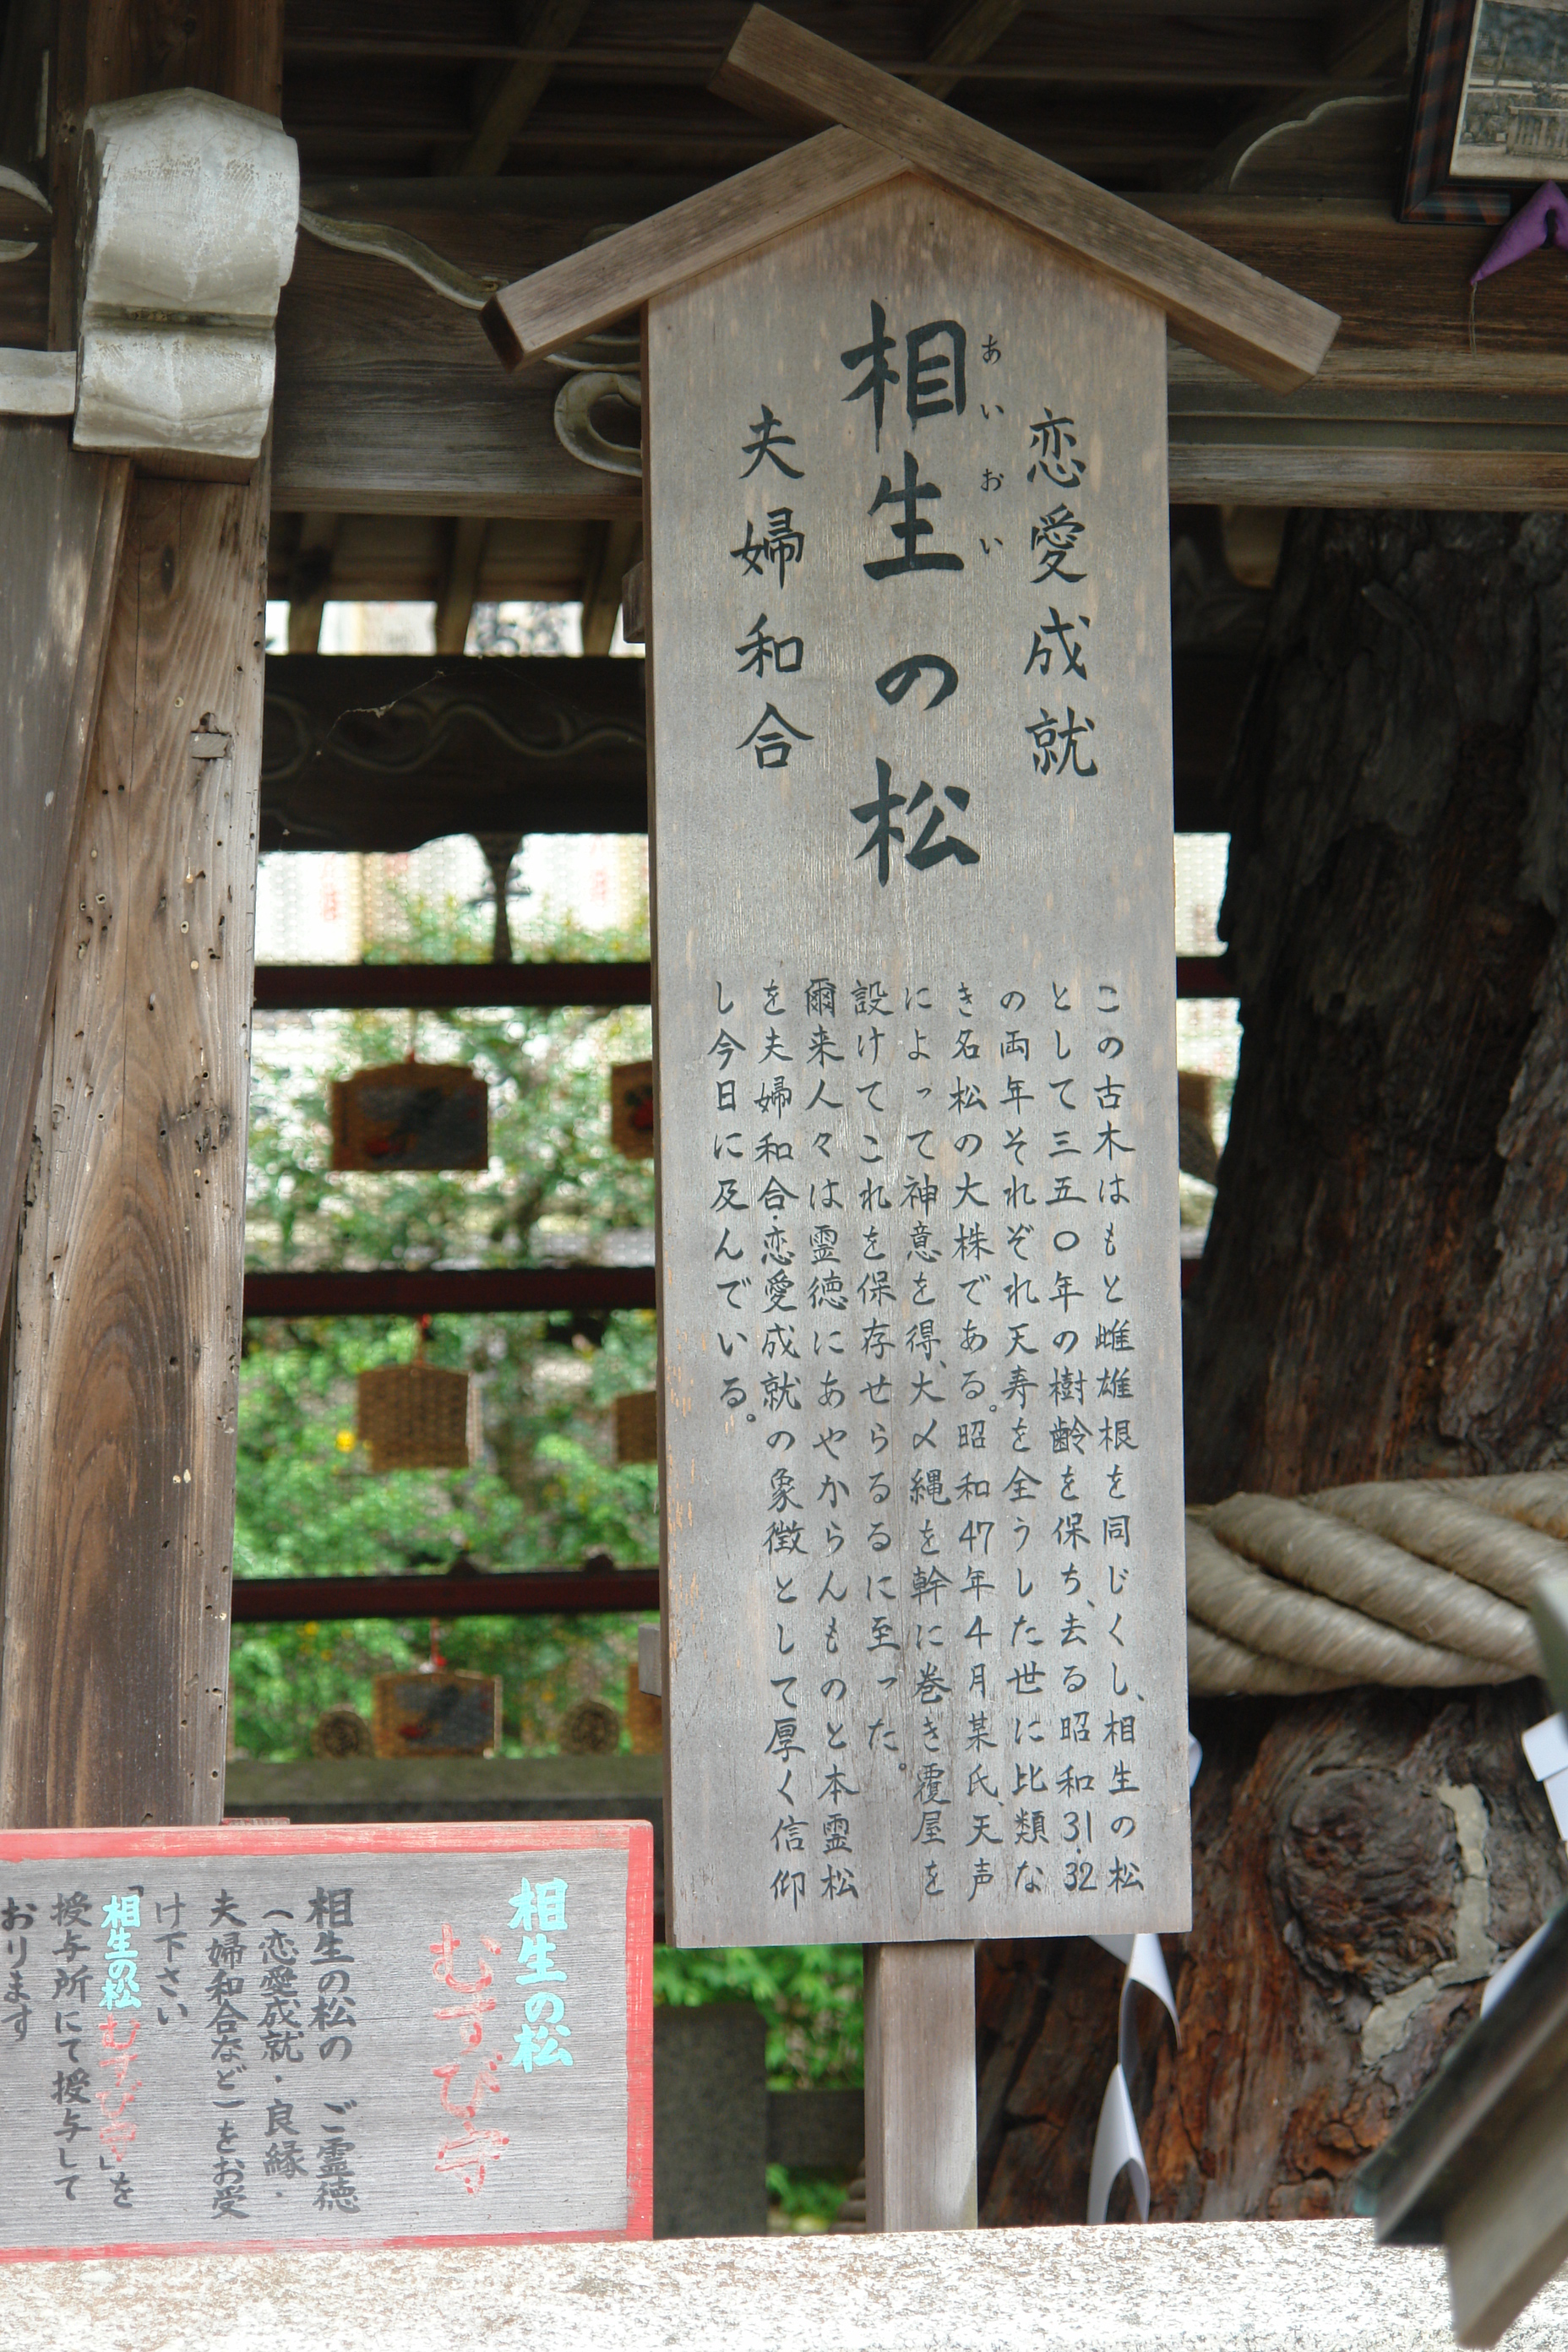 恋愛成就
あいおい
相生の松
夫婦和合
この古木はもと雌雄根を同じくし、相生の松
として三五〇年の樹齢を保ち、去る昭和31.32
の両年それぞれ天寿を全うした世に比類な
き名松の大株である。昭和47年4月某氏、天声
によって神意を得、大〆縄を幹に巻き覆屋を
設けてこれを保存せらるるに至った。
爾来人々は霊徳にあやからんものと本霊松
を夫婦和合・恋愛成就の象徴として厚く信仰
し今日に及んでいる。
相生の松
むすび守
相生の松の ご霊徳
(恋愛成就・良縁・
夫婦和合など)をお受
け下さい
「相生の松むすび守」を
授与所にて授与して
おります